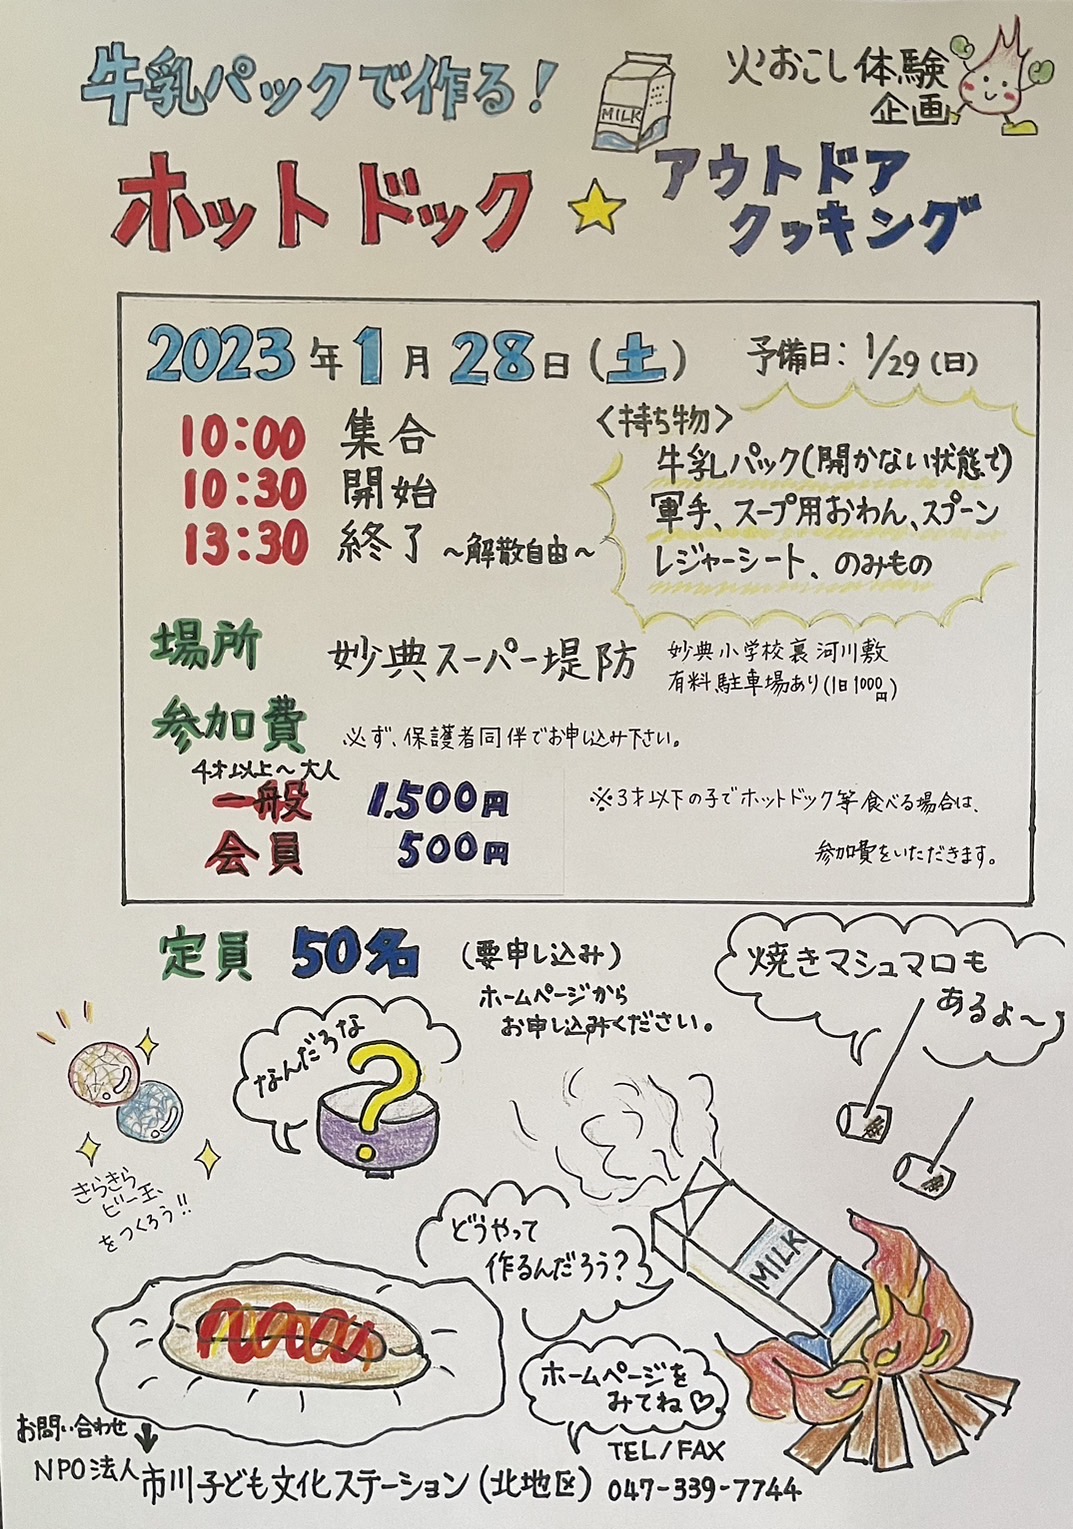 牛乳パックで作る!
MILK
火おこし体験
企画
ホットドック☆アウトドア
クッキング
2023年1月28日(土) 予備日:1/29(日)
10:00 集合
10:30 開始
13:30 終了 ~解散自由~
<持ち物>
牛乳パック(開かない状態で)
軍手、スープ用おわん、スプーン
レジャーシート、のみもの
場所 妙典スーパー堤防
妙典小学校裏河川敷
有料駐車場あり(1日1000円)
参加費 必ず、保護者同伴でお申し込み下さい。
4才以上~大人
一般 1.500円
会員 500円
※3才以下の子でホットドック等食べる場合は、
参加費をいただきます。
定員 50名 (要申し込み)
ホームページから
お申し込みください。
焼きマシュマロも
あるよ~♪
なんだろな
?
きらきら
ビー玉、
をつくろう!!
どうやって
作るんだろう?
MILK
ホームページを
みてね♡
お問い合わせ
↓
NPO法人市川子ども文化ステーション(北地区)
TEL/FAX
047-339-7744